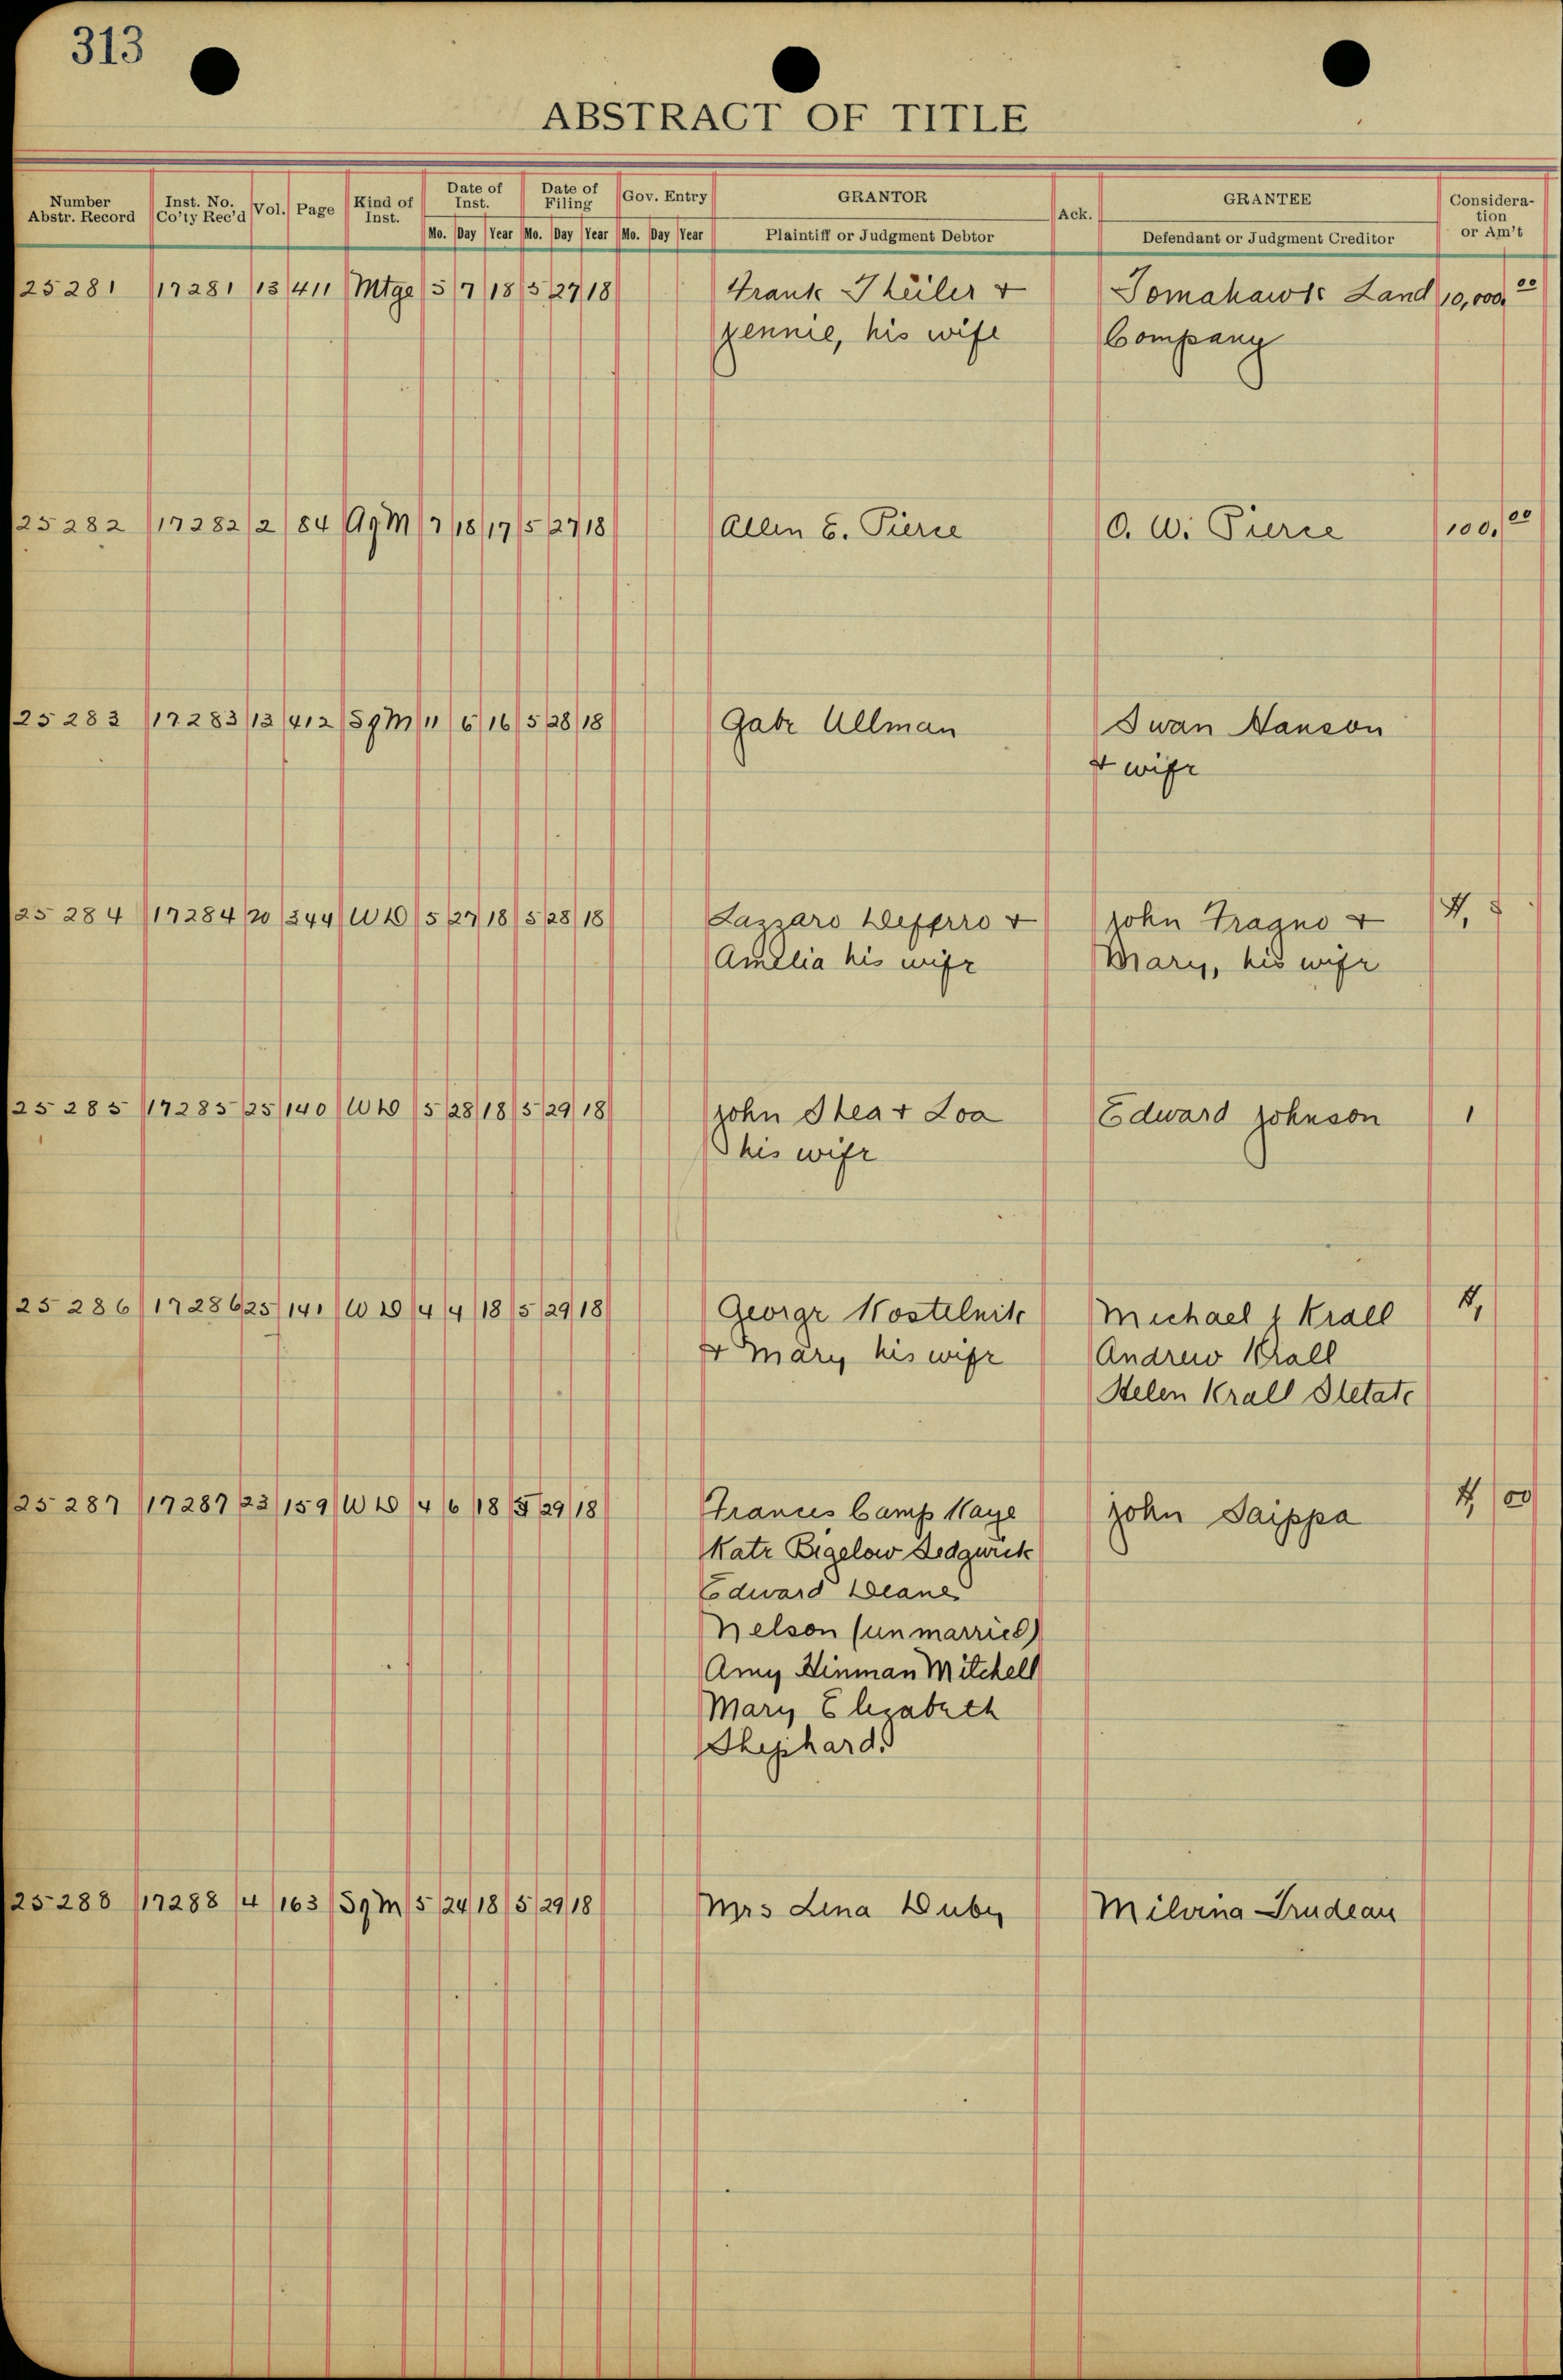 313
ABSTRACT OF TITLE
Number Abstr. Record Inst. No. Co'ty Rec'd Vol. Page Kind of Inst. Date of Inst. Date of Filing Gov. Entry GRANTOR Ack. GRANTEE Consideration or Am't
Mo. Day Year Mo. Day Year Mo. Day Year Plaintiff or Judgment Debtor Defendant or Judgment Creditor
25281 17281 13 411 Mtge 5 7 18 5 27 18 Frank Theiler + Tomahawk Land 10,000.00
Jennie, his wife Company
25282 17282 2 84 AgM 7 18 17 5 27 18 Allen E. Pierce O. W. Pierce 100.00
25283 17283 13 412 SgM 11 6 16 5 28 18 Gabe Ullman Swan Hanson
+ wife
25284 17284 20 344 WD 5 27 18 5 28 18 Lazzaro Deferro + John Fragno + 1,
Amelia his wife Mary, his wife
25285 17285 25 140 WD 5 28 18 5 29 18 John Shea + Loa Edward Johnson 1
his wife
25286 17286 25 141 WD 4 4 18 5 29 18 George Kostelnik Michael Krall
+ Mary his wife Andrew Krall
Helen Krall
25287 17287 23 159 WD 4 6 18 5 29 18 Frances Camp Kaye John Saippa 00
Kate Bigelow Sedgwick
Edward Deane
Nelson (unmarried)
Amy Hinman Mitchell
Mary Elizabeth
Shephard.
25288 17288 4 163 SgM 5 24 18 5 29 18 Mrs Lena Duby Milvina Trudeau